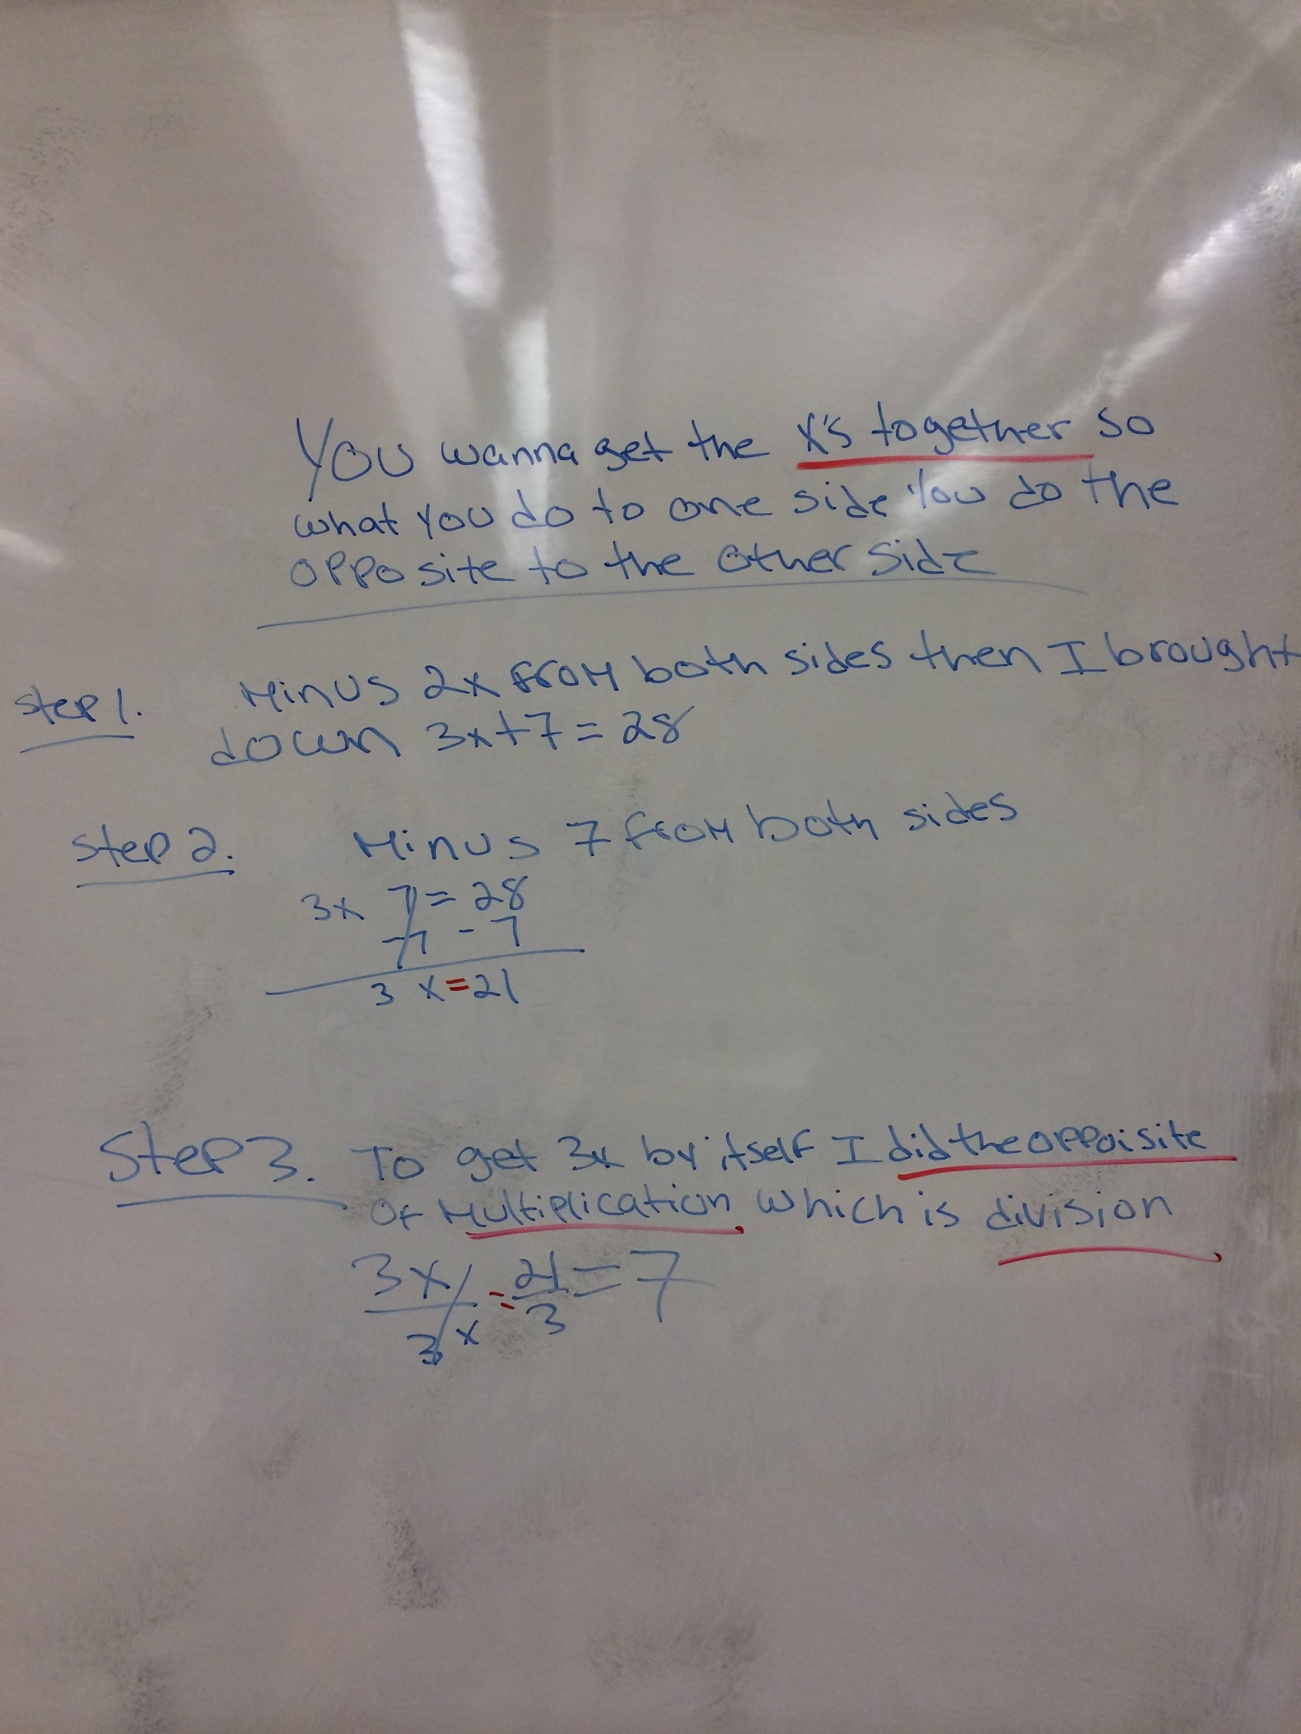 You wanna get the x's together so
what you do to one side You do the
opposite to the other side
Step 1. Minus 2x from both sides then I brought
down 3x+7=28
Step 2. Minus 7 from both sides
3x 7=28
-7 -7
3x=21
Step 3. To get 3x by itself I did the oppoisite
of Multiplication which is division
3x/3x = 21/3 = 7